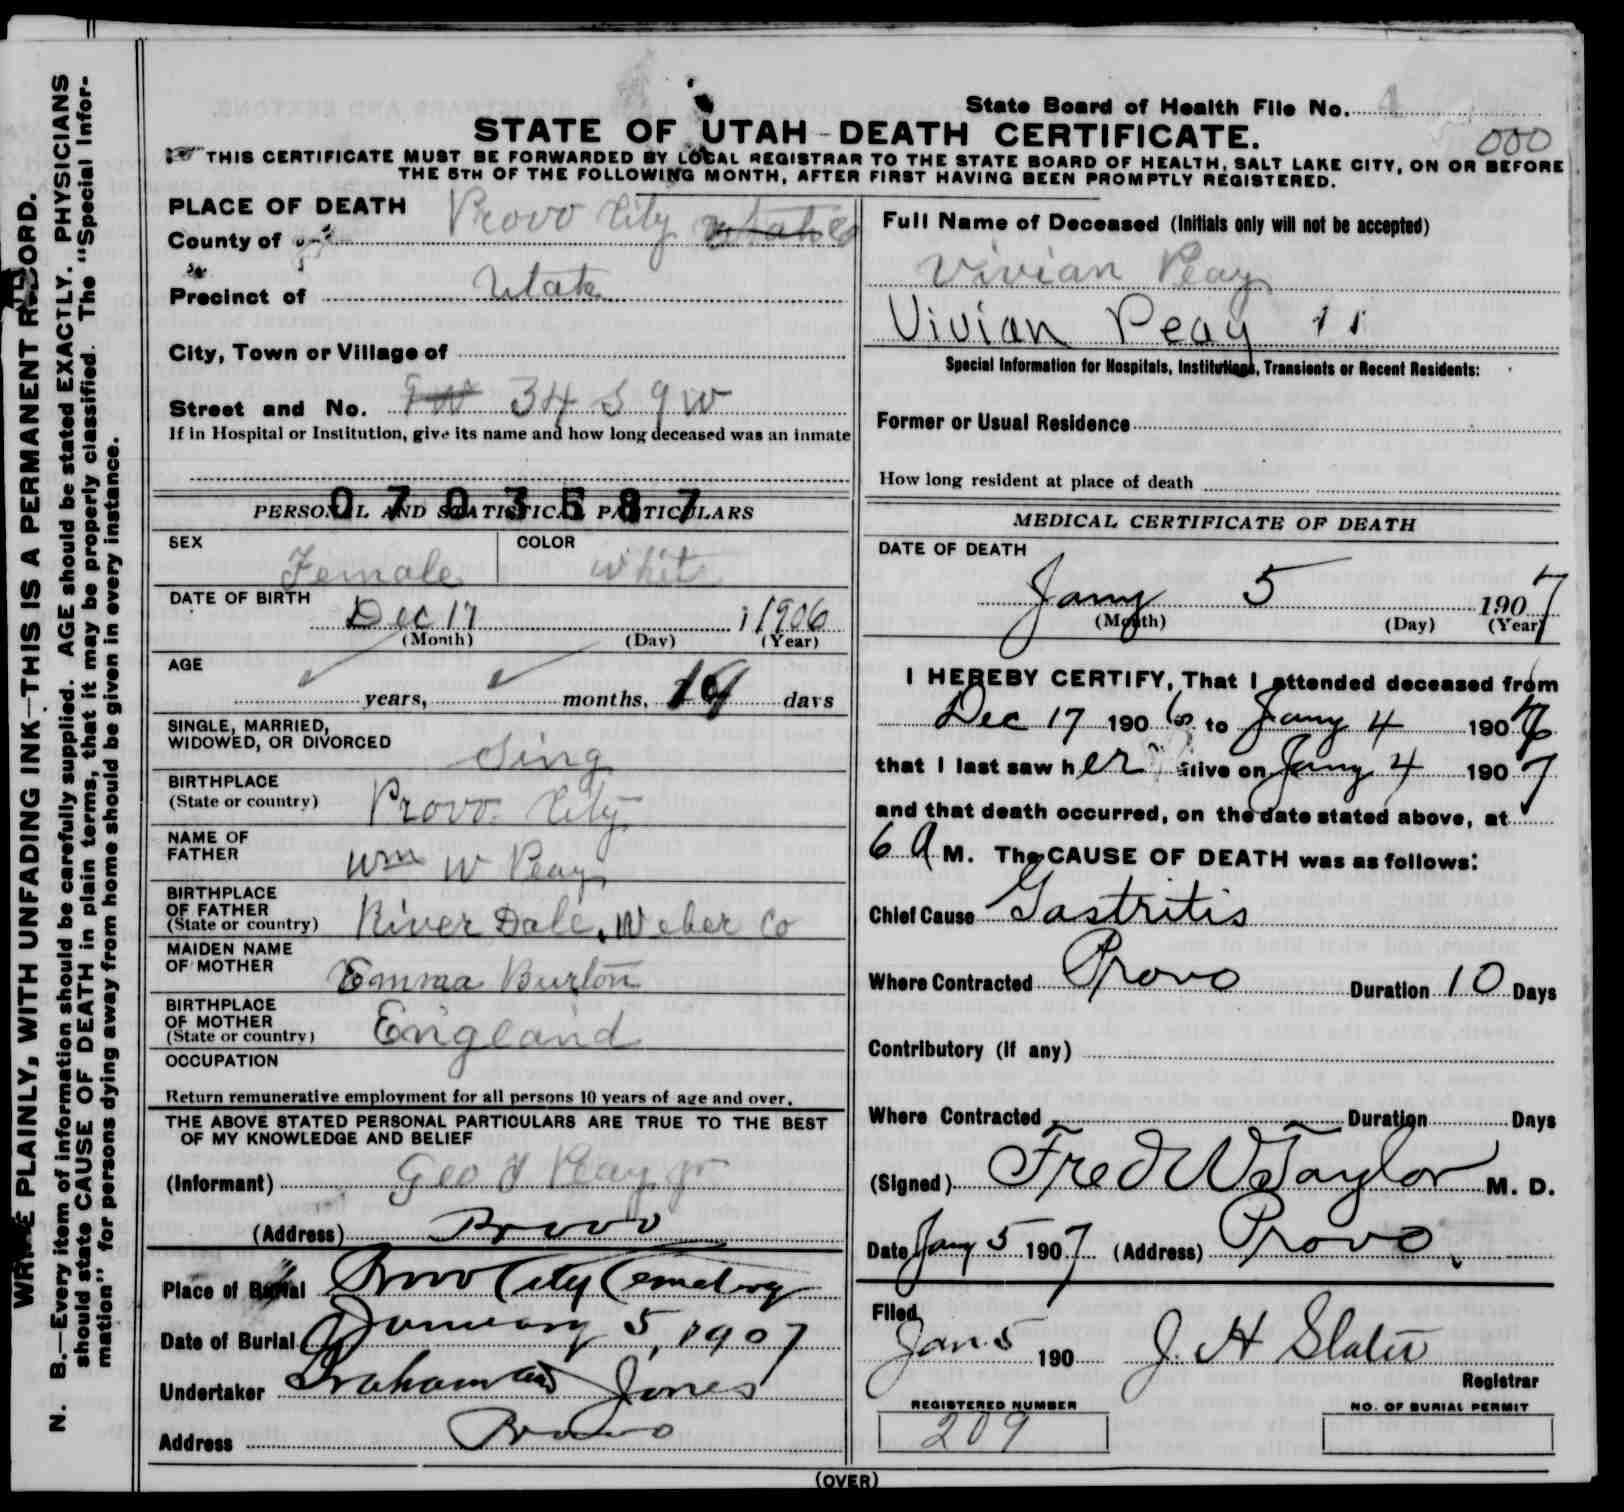 State Board of Health File No. 4
STATE OF UTAH - DEATH CERTIFICATE.
000
THIS CERTIFICATE MUST BE FORWARDED BY LOCAL REGISTRAR TO THE STATE BOARD OF HEALTH, SALT LAKE CITY, ON OR BEFORE
THE 5TH OF THE FOLLOWING MONTH, AFTER FIRST HAVING BEEN PROMPTLY REGISTERED.
PLACE OF DEATH
County of Provo City Utah Co
Precinct of Utah
City, Town or Village of
Street and No. 34 S 9 W
If in Hospital or Institution, give its name and how long deceased was an inmate
0703587
PERSONAL AND STATISTICAL PARTICULARS
SEX Female COLOR White
DATE OF BIRTH Dec 17 1906
(Month) (Day) (Year)
AGE years, months, 19 days
SINGLE, MARRIED,
WIDOWED, OR DIVORCED Sing
BIRTHPLACE
(State or country) Provo City
NAME OF
FATHER Wm W Peay
BIRTHPLACE
OF FATHER
(State or country) River Dale, Weber Co
MAIDEN NAME
OF MOTHER Emma Burton
BIRTHPLACE
OF MOTHER
(State or country) England
OCCUPATION
Return remunerative employment for all persons 10 years of age and over.
THE ABOVE STATED PERSONAL PARTICULARS ARE TRUE TO THE BEST
OF MY KNOWLEDGE AND BELIEF
(Informant) Geo Peay jr
(Address) Provo
Place of Burial Provo City Cemetery
Date of Burial January 5, 1907
Undertaker Graham and Jones
Address Provo
Full Name of Deceased (Initials only will not be accepted)
Vivian Peay
Vivian Peay
Special Information for Hospitals, Institutions, Transients or Recent Residents:
Former or Usual Residence
How long resident at place of death
MEDICAL CERTIFICATE OF DEATH
DATE OF DEATH
Jany 5 1907
(Month) (Day) (Year)
I HEREBY CERTIFY, That I attended deceased from
Dec 17 1906 to Jany 4 1907
that I last saw her alive on Jany 4 1907
and that death occurred, on the date stated above, at
6 A M. The CAUSE OF DEATH was as follows:
Chief Cause Gastritis
Where Contracted Provo Duration 10 Days
Contributory (if any)
Where Contracted Duration Days
(Signed) Fred W Taylor M. D.
Date Jany 5 1907 (Address) Provo.
Filed
Jan 5 190 J. H Slater
Registrar
REGISTERED NUMBER
209
NO. OF BURIAL PERMIT
(OVER)
WRITE PLAINLY, WITH UNFADING INK—THIS IS A PERMANENT RECORD.
N. B.—Every item of information should be carefully supplied. AGE should be stated EXACTLY. PHYSICIANS
should state CAUSE OF DEATH in plain terms, that it may be properly classified. The "Special Infor-
mation" for persons dying away from home should be given in every instance.